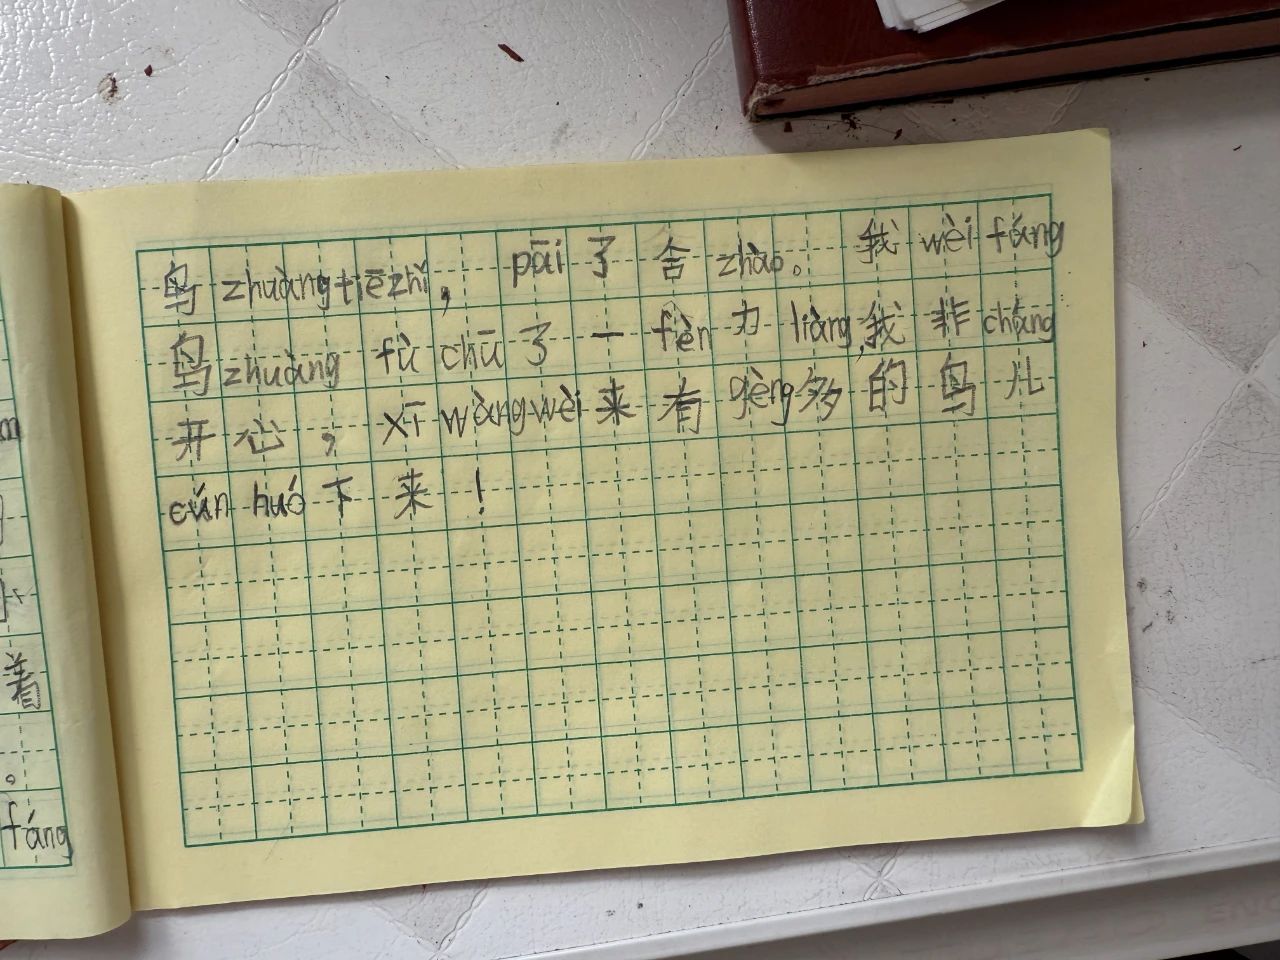 m
着
。
fáng
鸟 zhuàng tiē zhǐ, pāi 了 合 zhào。 我 wèi fáng
鸟 zhuàng fù chū 了 一 fèn 力 liàng, 我 非 cháng
开 心 , xī wàng wèi 来 有 gèng 多 的 鸟 儿
cún huó 下 来 !